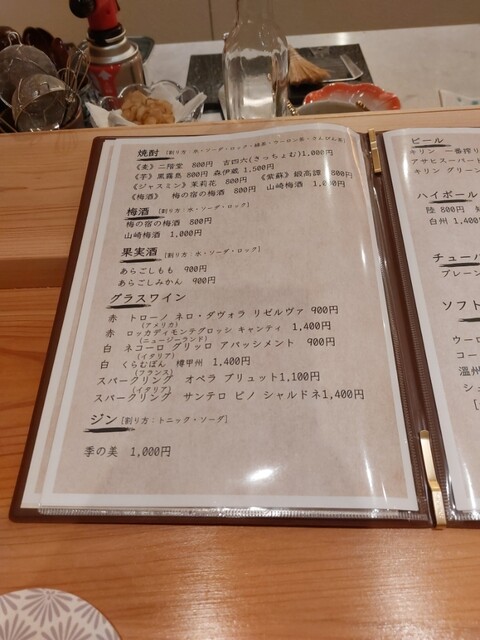 焼酎 [割り方：水・ソーダ・ロック・緑茶・ウーロン茶・さんぴん茶]
《麦》二階堂 800円 吉四六(きっちょむ)1,000円
《芋》黒霧島 800円 森伊蔵 1,500円 《紫蘇》鍛高譚 800円
《ジャスミン》茉莉花 800円 山崎梅酒 1,000円
《梅酒》 梅の宿の梅酒 800円
梅酒 [割り方：水・ソーダ・ロック]
梅の宿の梅酒 800円
山崎梅酒 1,000円
果実酒 [割り方：水・ソーダ・ロック]
あらごしもも 900円
あらごしみかん 900円
グラスワイン
赤 トローノ ネロ・ダヴォラ リゼルヴァ 900円
(アメリカ)
赤 ロッカディモンテグロッシ キャンティ 1,400円
(ニュージーランド)
白 ネコーロ グリッロ アパッシメント 900円
(イタリア)
白 くらむぼん 樽甲州 1,400円
(フランス)
スパークリング オペラ ブリュット1,100円
(イタリア)
スパークリング サンテロ ピノ シャルドネ1,400円
ジン [割り方：トニック・ソーダ]
季の美 1,000円
ビール
キリン 一番搾り
アサヒスーパード
キリン グリーン
ハイボール
陸 800円
白州 1,400
チューハ
プレーン
ソフト
ウーロ
コー
温州
シュ